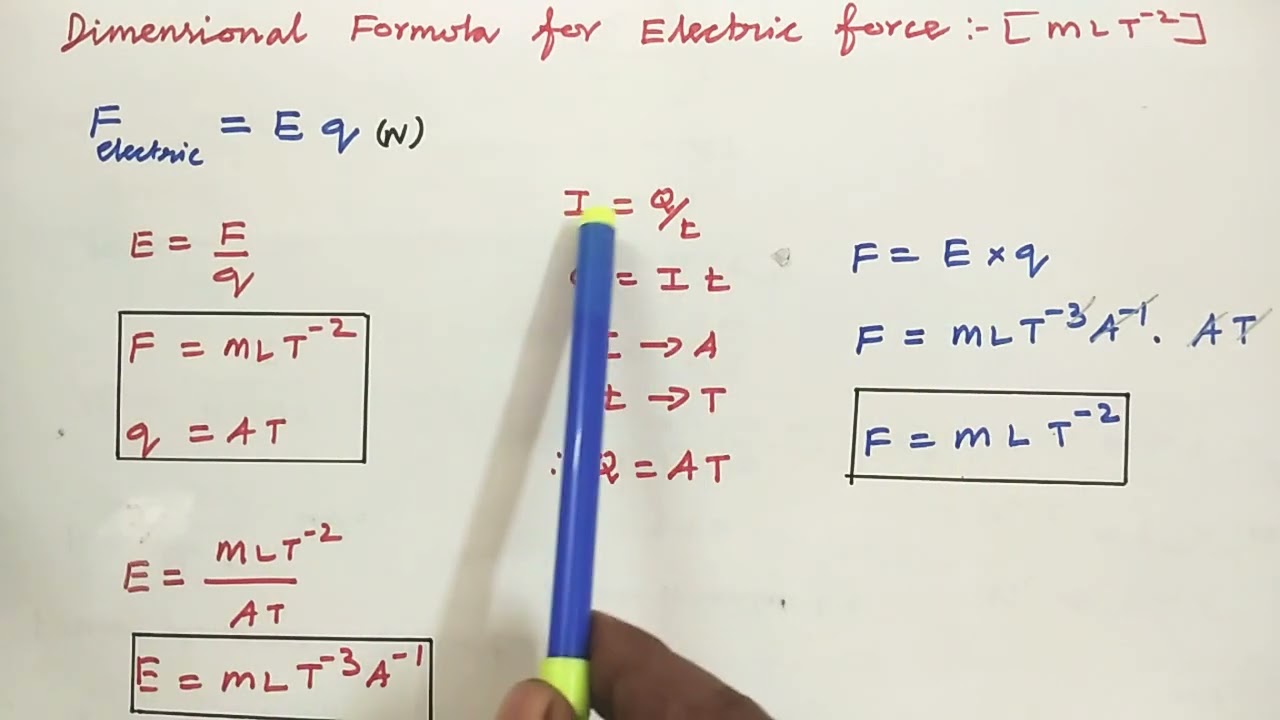 Dimensional Formula for Electric force :- [MLT⁻²]
F electric = E q (N)
E = F/q
F = MLT⁻²
q = AT
E = MLT⁻²/AT
E = MLT⁻³A⁻¹
I = Q/t
= I t
I → A
t → T
∴ Q = AT
F = E × q
F = MLT⁻³A⁻¹. AT
F = MLT⁻²